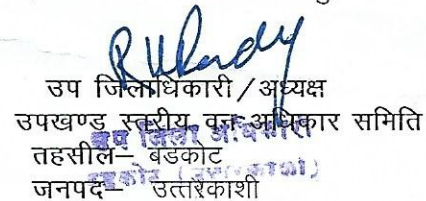 उप जिलाधिकारी/अध्यक्ष
उपखण्ड स्तरीय वन अधिकार समिति
उप जिला अधिकारी
तहसील– बडकोट
बड़कोट (उत्तरकाशी)
जनपद– उत्तरकाशी